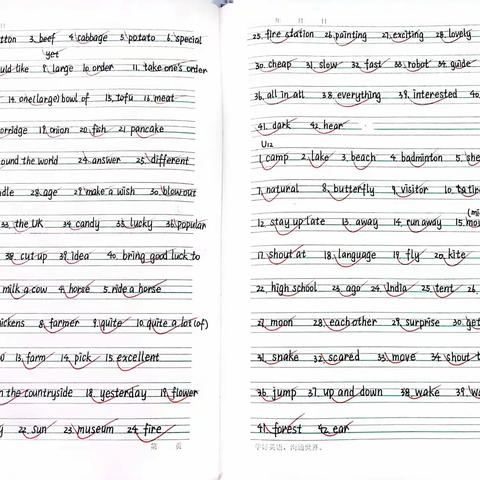 2. cabbage 5. potato 6. special
3. beef
yet
9. large 10. order 11. take one's order
14. one(large) bowl of 15. tofu 16. meat
19. onion 20. fish 21. pancake
24. answer 25. different
28. age 29. make a wish 30. blow out
33. the UK 34. candy 35. lucky 36. popular
38. cut up 39. idea 40. bring good luck to
milk a cow 4. horse 5. ride a horse
8. farmer 9. quite 10. quite a lot (of)
13. farm 14. pick 15. excellent
the countryside 18. yesterday 19. flower
22. sun 23. museum 24. fire
第 页
25. fire station 26. painting 27. exciting 28. lovely
30. cheap 31. slow 32. fast 33. robot 34. guide
36. all in all 38. everything 39. interested 40.
41. dark 42. hear
U12
1. camp 2. lake 3. beach 4. badminton 5.
7. natural 8. butterfly 9. visitor 10.
12. stay up late 13. away 14. run away 15.
17. shout at 18. language 19. fly 20. kite
22. high school 23. ago 24. India 25. tent 26.
27. moon 28. each other 29. surprise 30. get
31. snake 32. scared 33. move 34. shout
36. jump 37. up and down 38. wake 39.
41. forest 42. ear
学好英语，沟通世界。